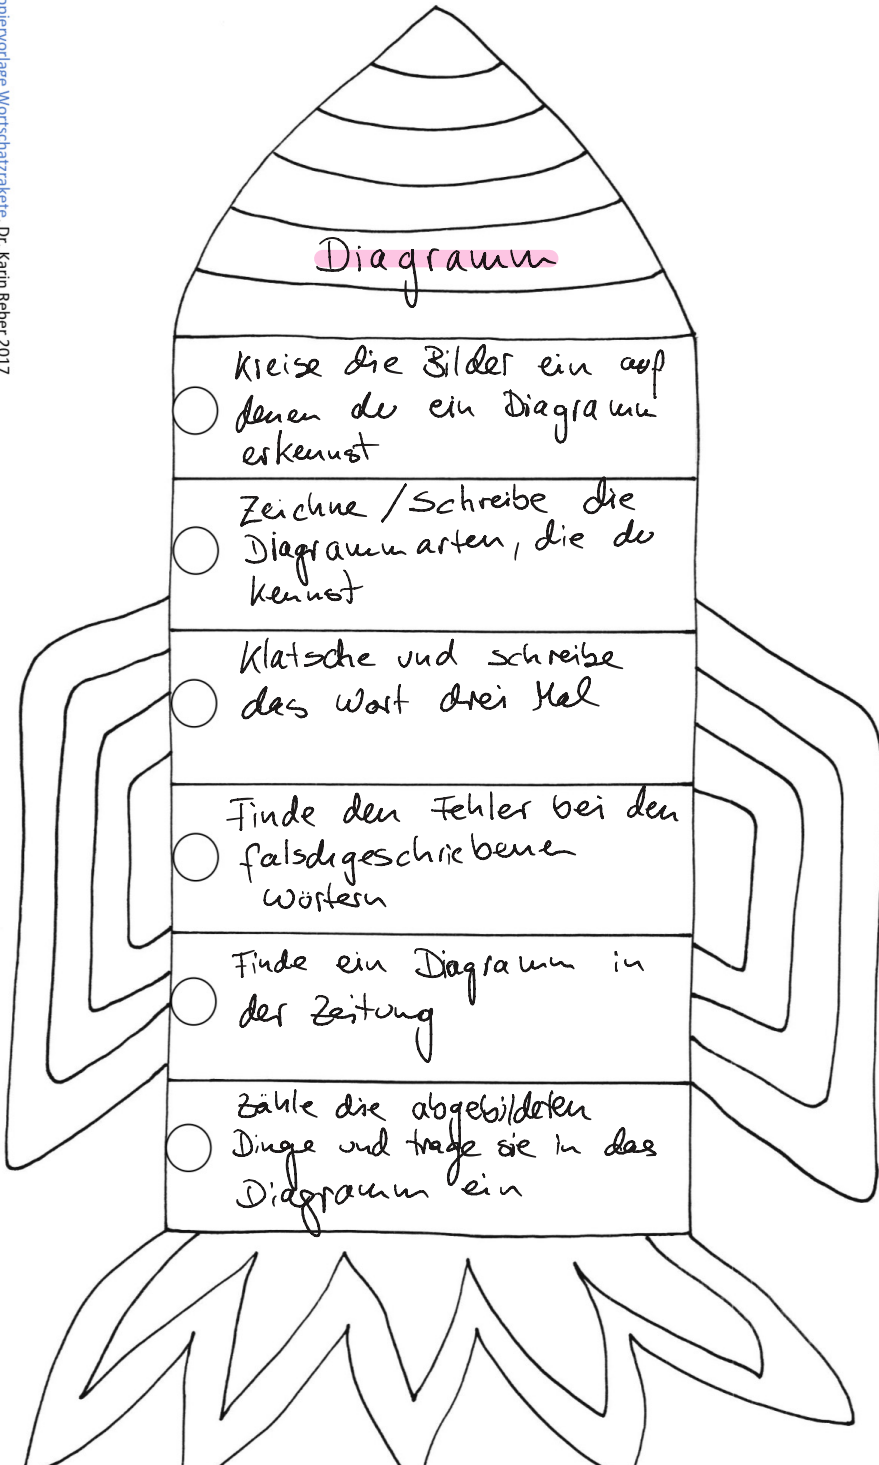 opiervorlage Wortschatzrakete, Dr. Karin Reber 2017
Diagramm
Kreise die Bilder ein auf
denen du ein Diagramm
erkennst
Zeichne / Schreibe die
Diagrammarten, die du
kennst
Klatsche und schreibe
das Wort drei Mal
Finde den Fehler bei den
falschgeschriebenen
Wörtern
Finde ein Diagramm in
der Zeitung
Zähle die abgebildeten
Dinge und trage sie in das
Diagramm ein